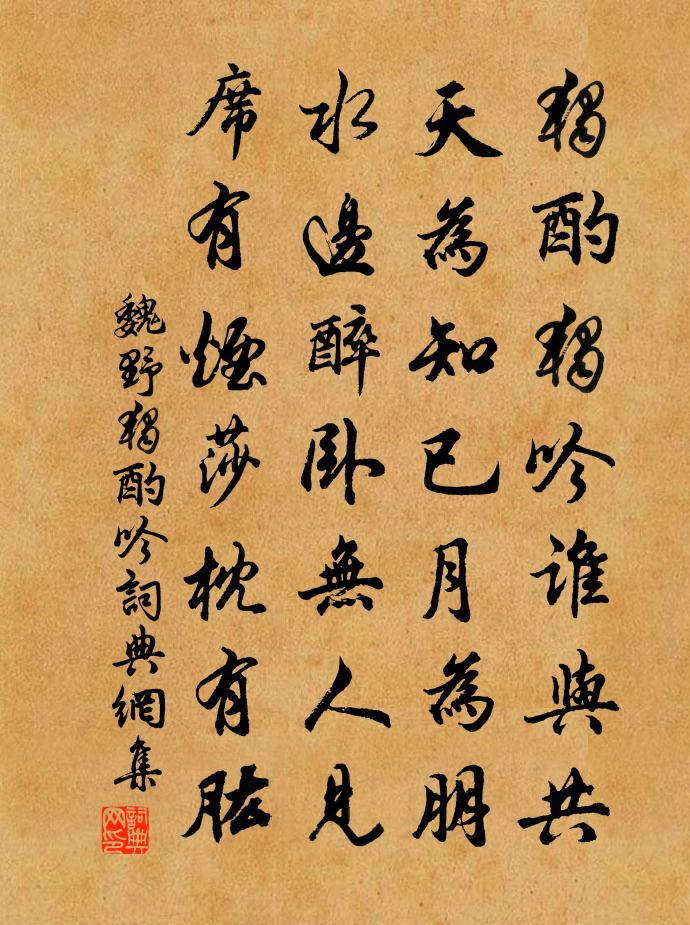 獨酌獨吟誰與共
天為知已月為朋
水邊醉臥無人見
席有煙莎枕有肱
魏野獨酌吟詞典網集
詞典网印